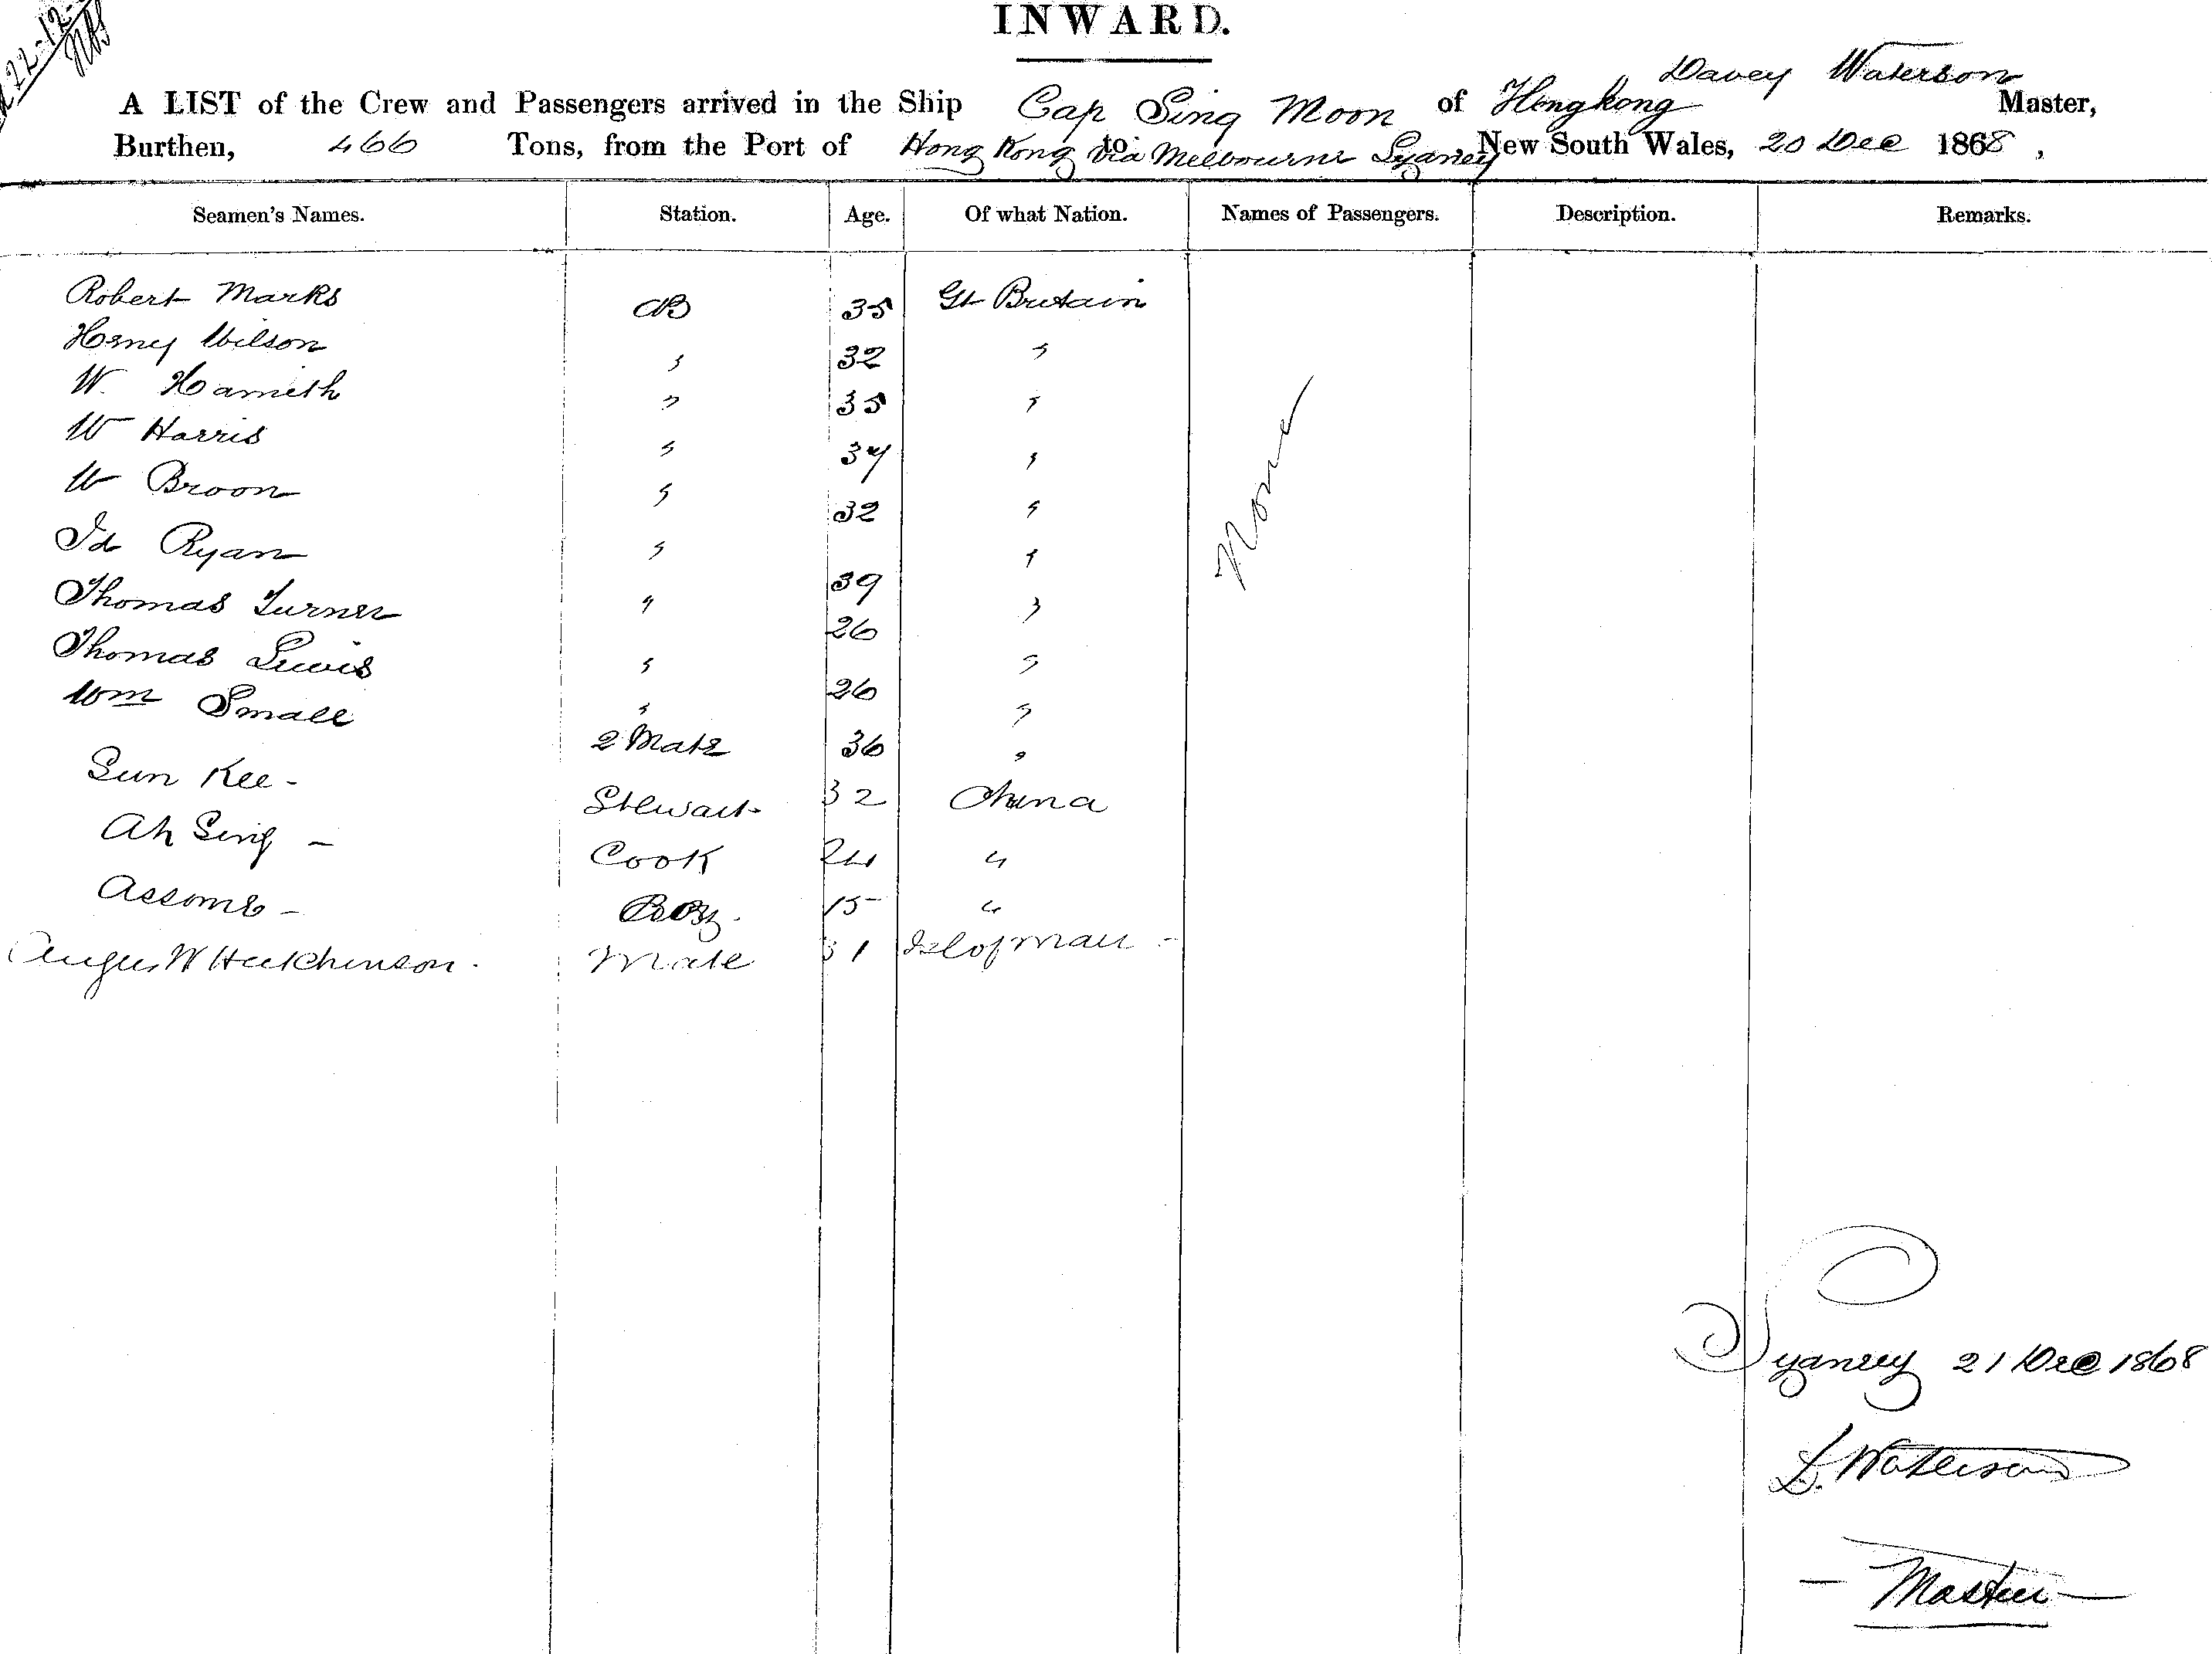 22-12-
INWARD.
Davey Waterson
A LIST of the Crew and Passengers arrived in the Ship Cap Sing Moon of Hongkong Master,
Burthen, 466 Tons, from the Port of Hong Kong to via Melbourne Sydney New South Wales, 20 Dec 1868,
Seamen's Names. Station. Age. Of what Nation. Names of Passengers. Description. Remarks.
Robert Marks AB 35 Gt Britain
Henry Wilson " 32 "
W. " 35 "
W Harris " 34 "
W Broon " 32 "
Ryan " 39 "
Thomas Turner " 26 "
Thomas Lewis " 26 "
Wm Small " "
2 Mate 36 "
None
Sun Kee - Stewart 32 China
Ah Sing - Cook 24 "
Assome - Boy. 15 "
Angus W Hutchinson. Mate 31 Isl of Man -
Sydney 21 Dec 1868
D. Waterson
- Master -